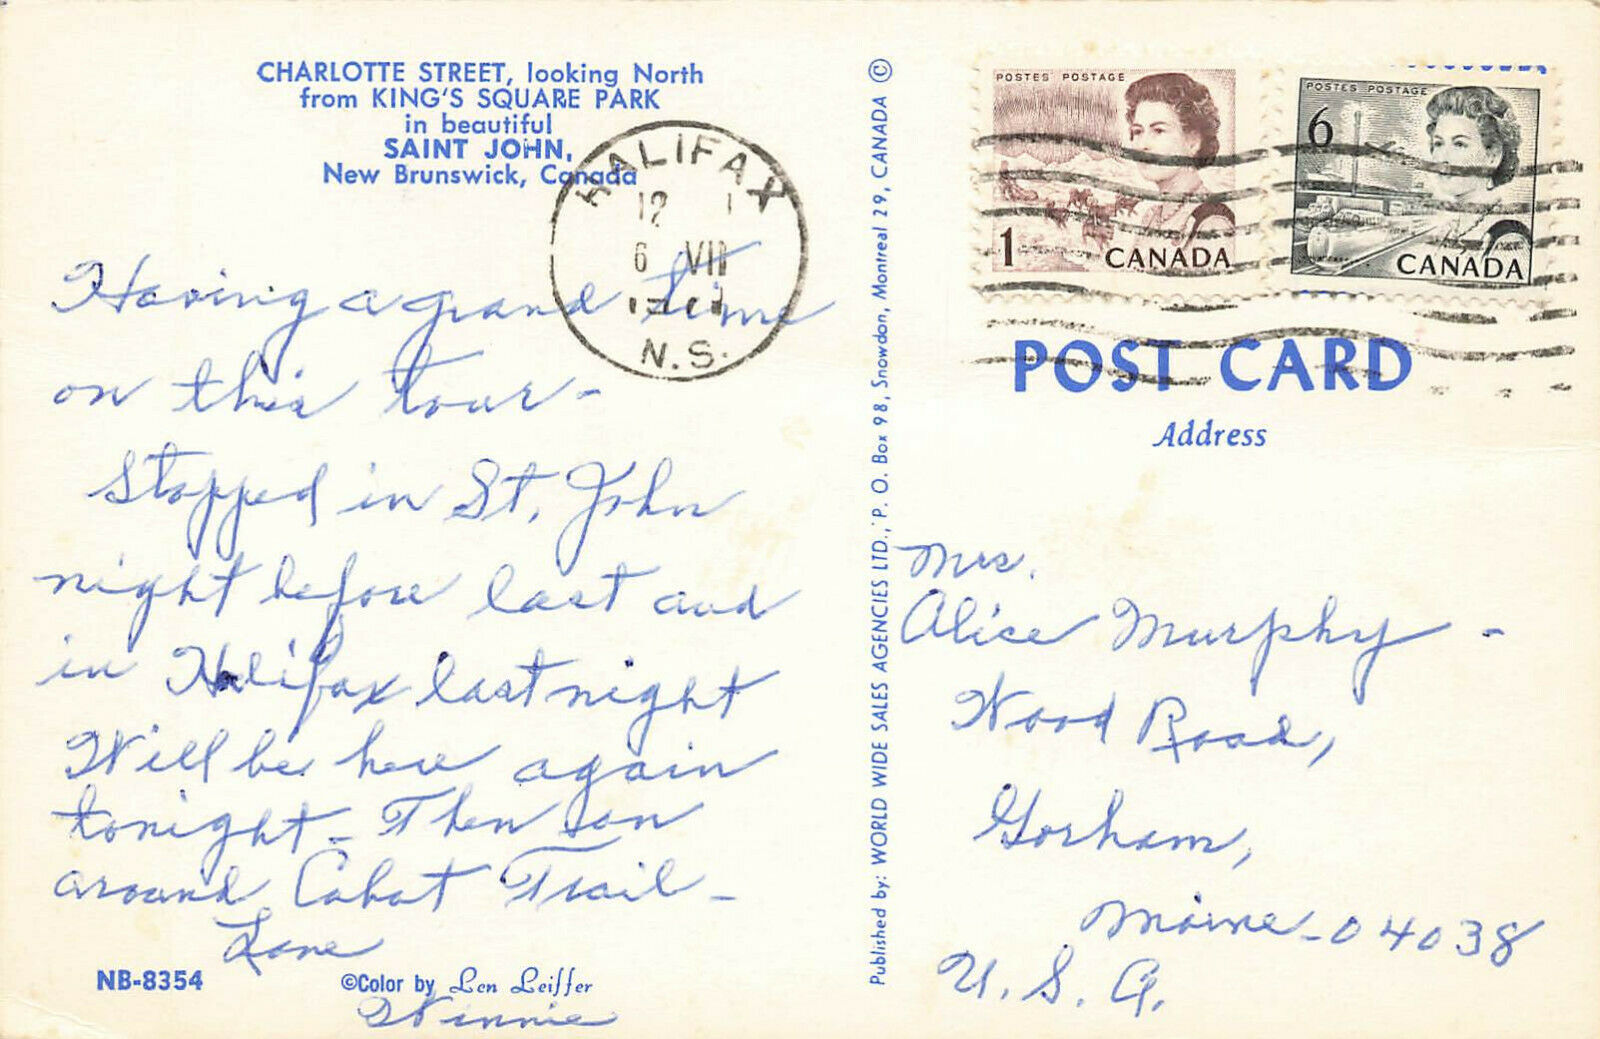 CHARLOTTE STREET, looking North
from KING'S SQUARE PARK
in beautiful
SAINT JOHN,
New Brunswick, Canada
HALIFAX
12 1
6 VII
N.S.
Having a grand time
on this tour-
Stopped in St. John
night before last and
in Halifax last night
Will be here again
tonight - Then on
around Cabot Trail -
Love
Winnie
NB-8354
©Color by Len Leiffer
Published by: WORLD WIDE SALES AGENCIES LTD., P. O. Box 98, Snowdon, Montreal 29, CANADA ©
POSTES POSTAGE
1 CANADA
POSTES POSTAGE
6
CANADA
POST CARD
Address
Mrs.
Alice Murphy -
Wood Road,
Gorham,
Maine - 04038
U. S. A.